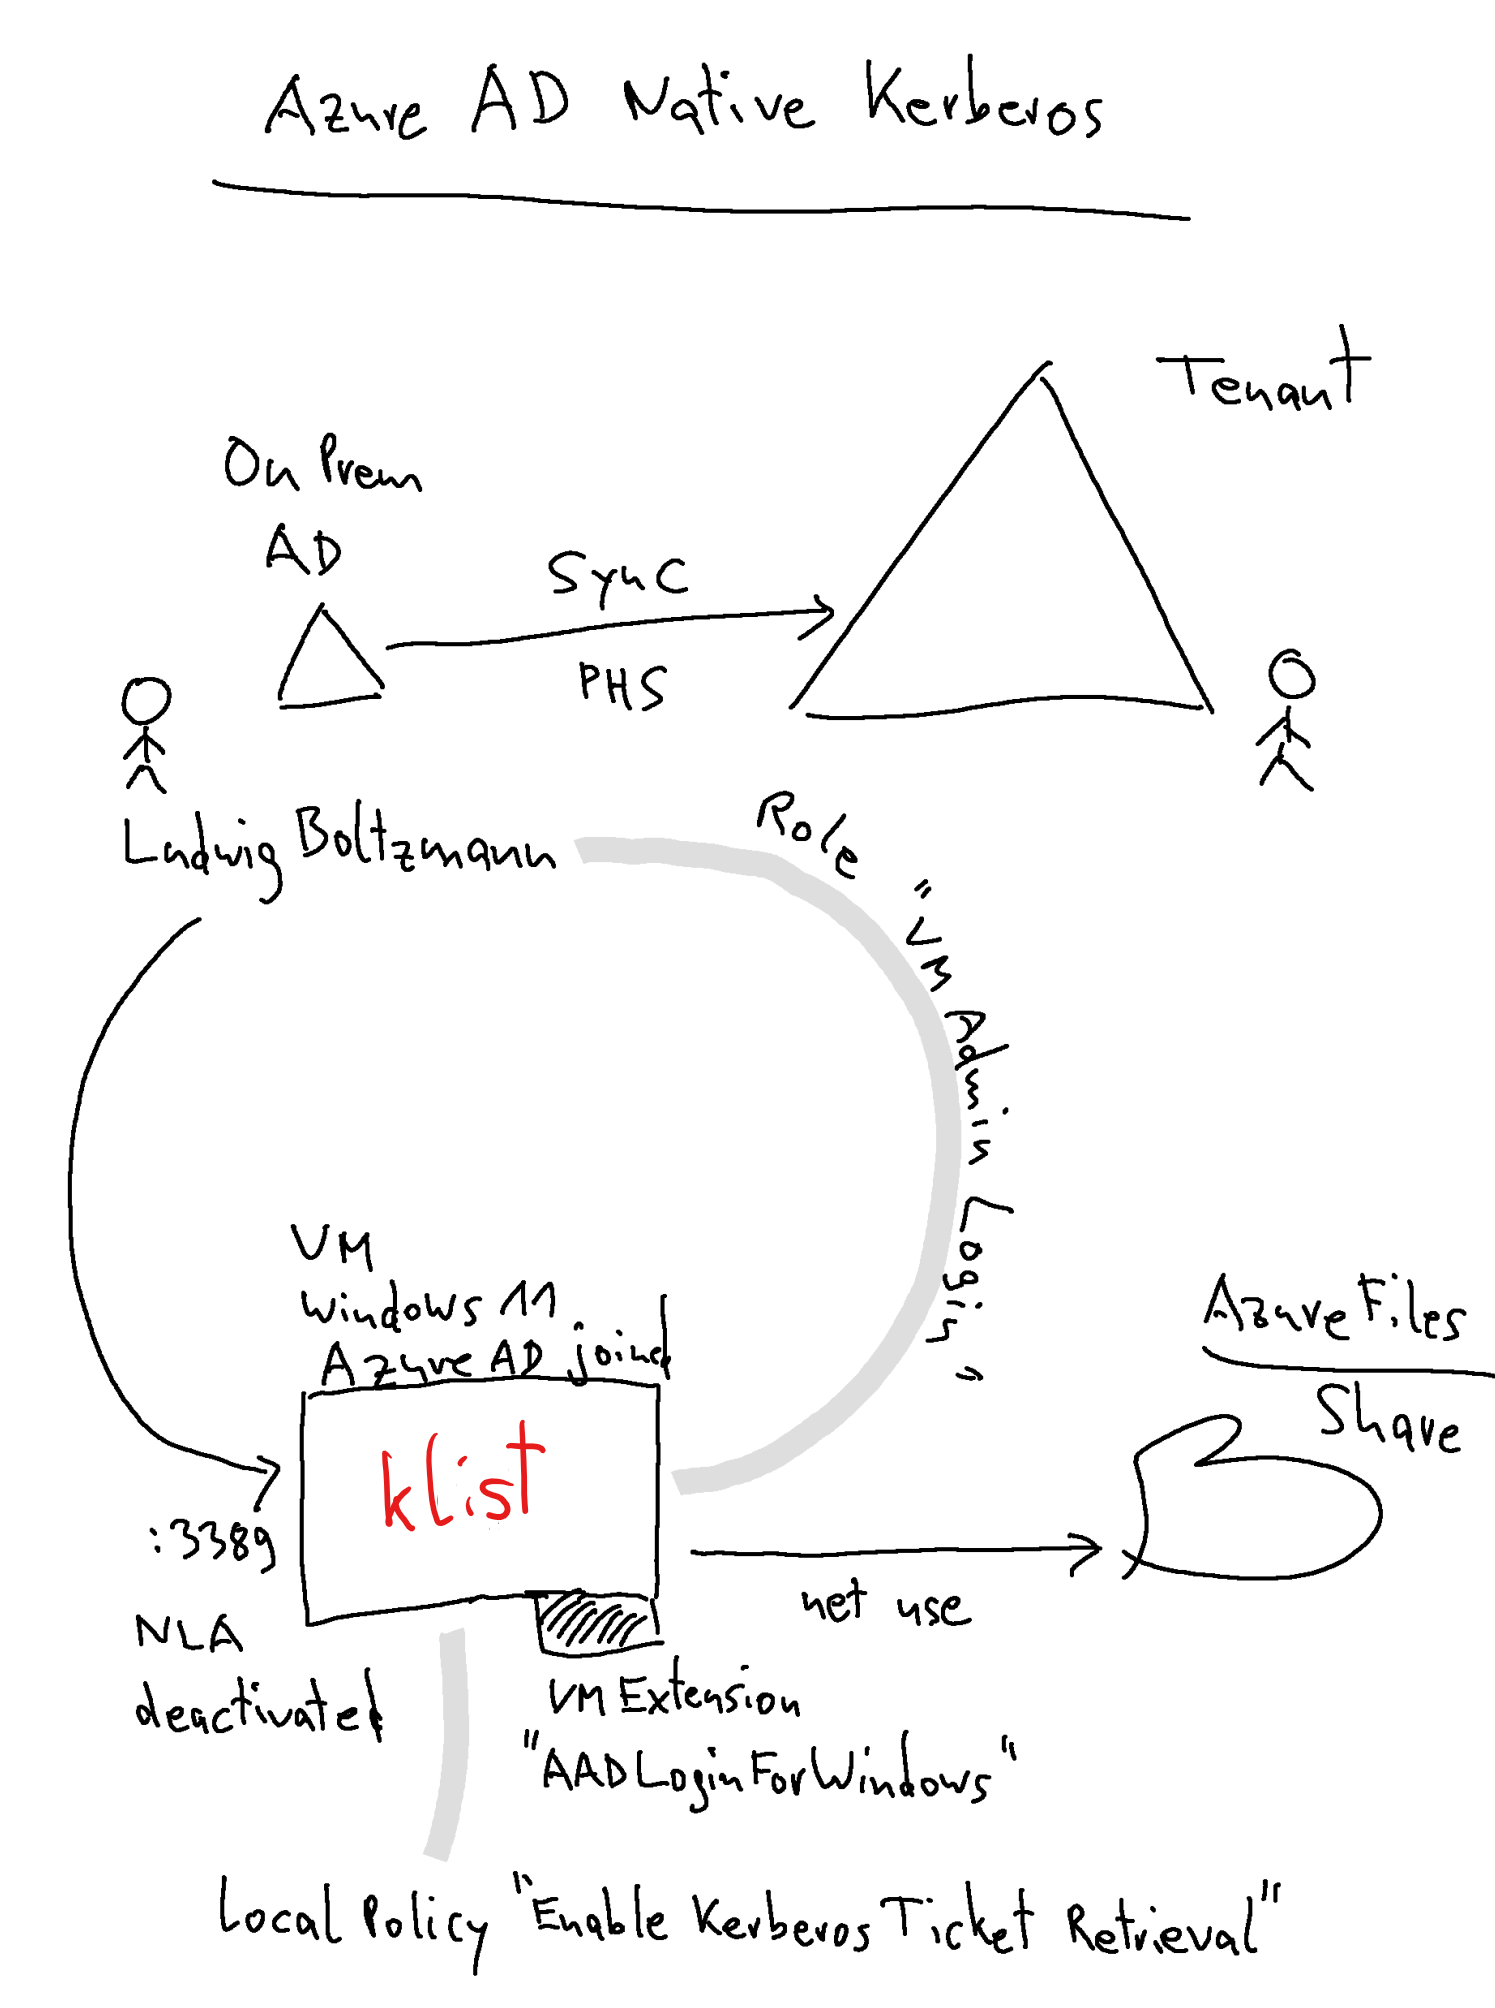 Azure AD Native Kerberos
Tenant
On Prem
AD
Sync
PHS
Ludwig Boltzmann
Role "VM Admin Login"
VM
Windows 11
Azure AD joined
klist
:3389
NLA
deactivated
Azure Files
Share
net use
VM Extension
"AADLoginForWindows"
Local Policy "Enable Kerberos Ticket Retrieval"